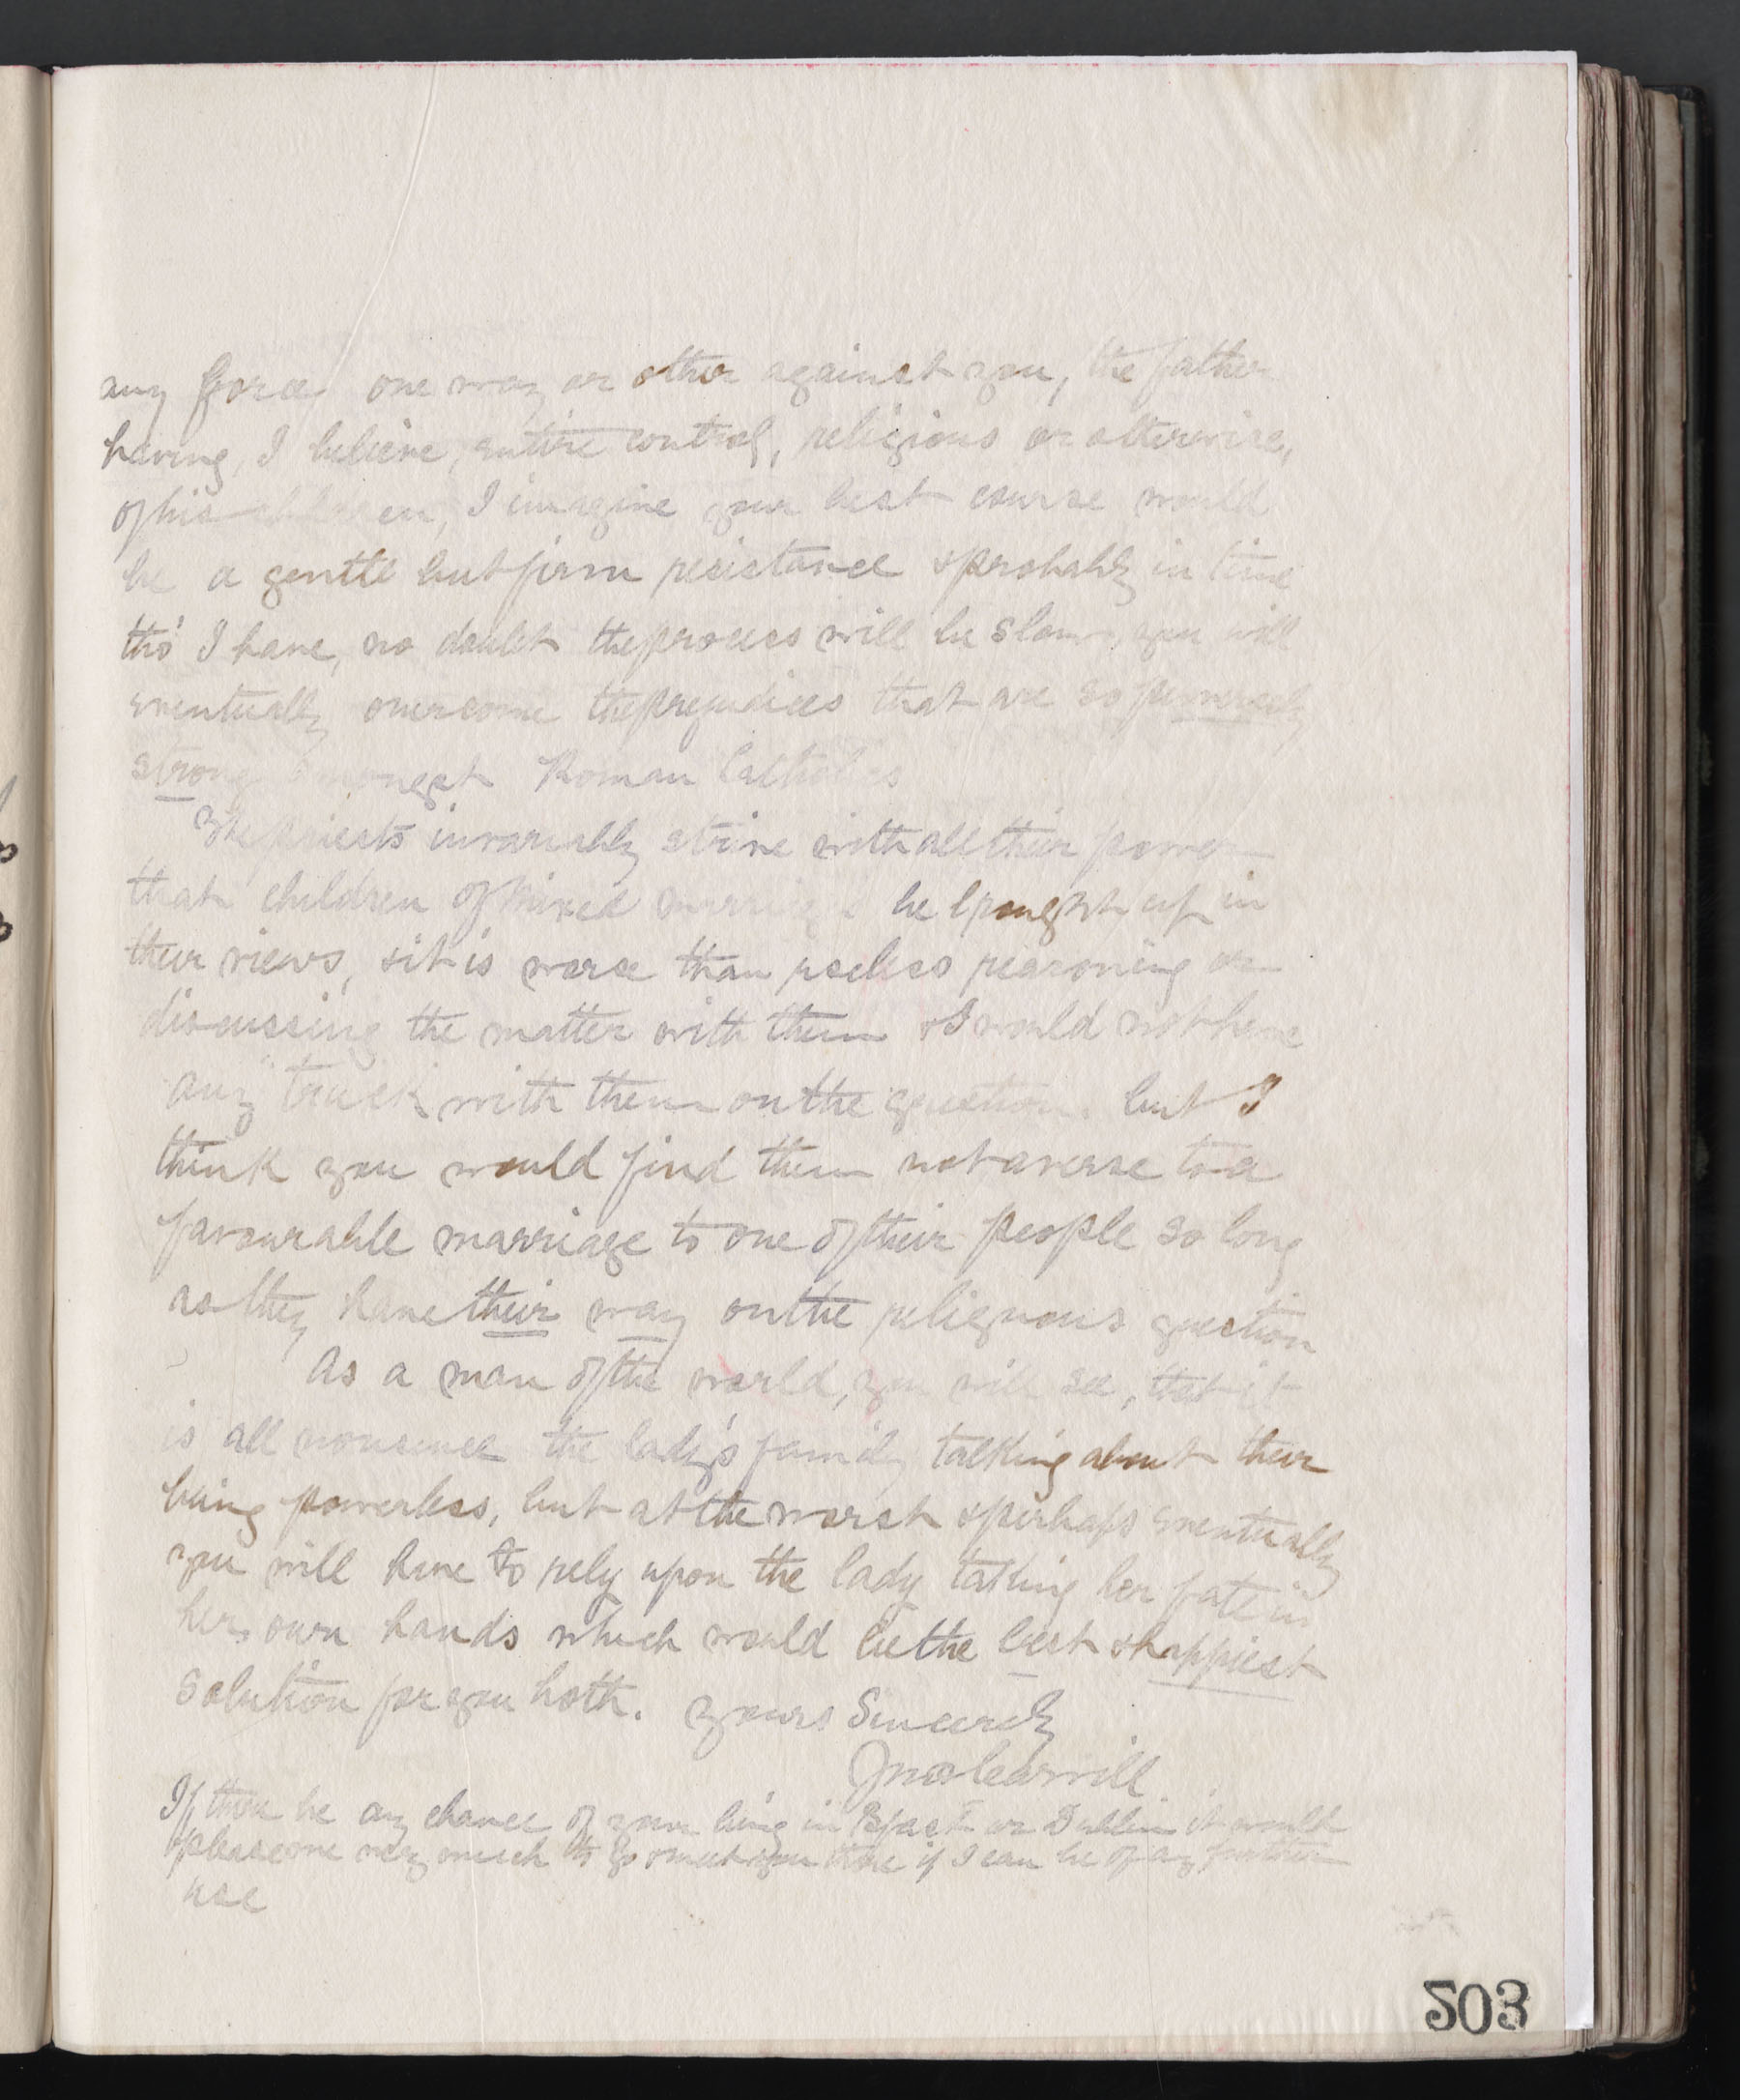 any force one way or other against you, the father
having, I believe, entire control, religious or otherwise,
of his children, I imagine your best course would
be a gentle but firm resistance & probably in time
tho' I have, no doubt the process will be slow, you will
eventually overcome the prejudices that are so perversely
strong amongst Roman Catholics
The priests invariably strive with all their power
that children of mixed marriages be brought up in
their views, & it is worse than useless reasoning or
discussing the matter with them & I would not have
any "truck" with them on the question. but I
think you would find them not averse to a
favourable marriage to one of their people so long
as they have their way on the religious question
As a man of the world, you will see, that it
is all nonsense the lady's family talking about their
being powerless, but at the worst & perhaps eventually
you will have to rely upon the lady taking her fate in
her own hands which would be the best & happiest
solution for you both. Yours Sincerely
If there be any chance of your being in Belfast or Dublin it would
please me very much to go & meet you there if I can be of any further
use
203